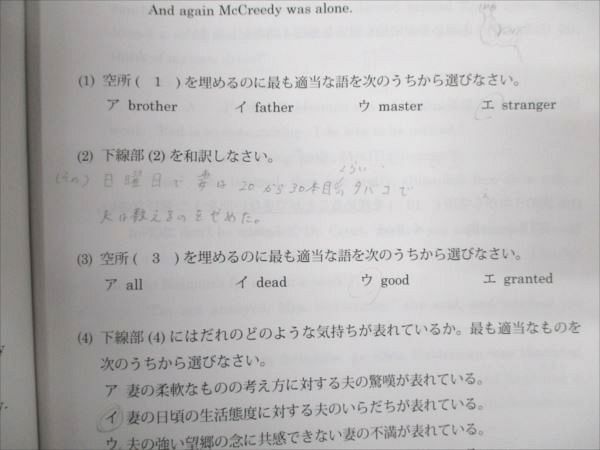 And again McCreedy was alone.
(1) 空所( 1 )を埋めるのに最も適当な語を次のうちから選びなさい。
ア brother イ father ウ master エ stranger
(2) 下線部(2)を和訳しなさい。
(その) 日曜日で 妻は 20から30本目 くらい タバコで
夫は数えるのをやめた。
(3) 空所( 3 )を埋めるのに最も適当な語を次のうちから選びなさい。
ア all イ dead ウ good エ granted
(4) 下線部(4)にはだれのどのような気持ちが表れているか。最も適当なものを
次のうちから選びなさい。
ア 妻の柔軟なものの考え方に対する夫の驚嘆が表れている。
イ 妻の日頃の生活態度に対する夫のいらだちが表れている。
ウ 夫の強い望郷の念に共感できない妻の不満が表れている。
y
y.